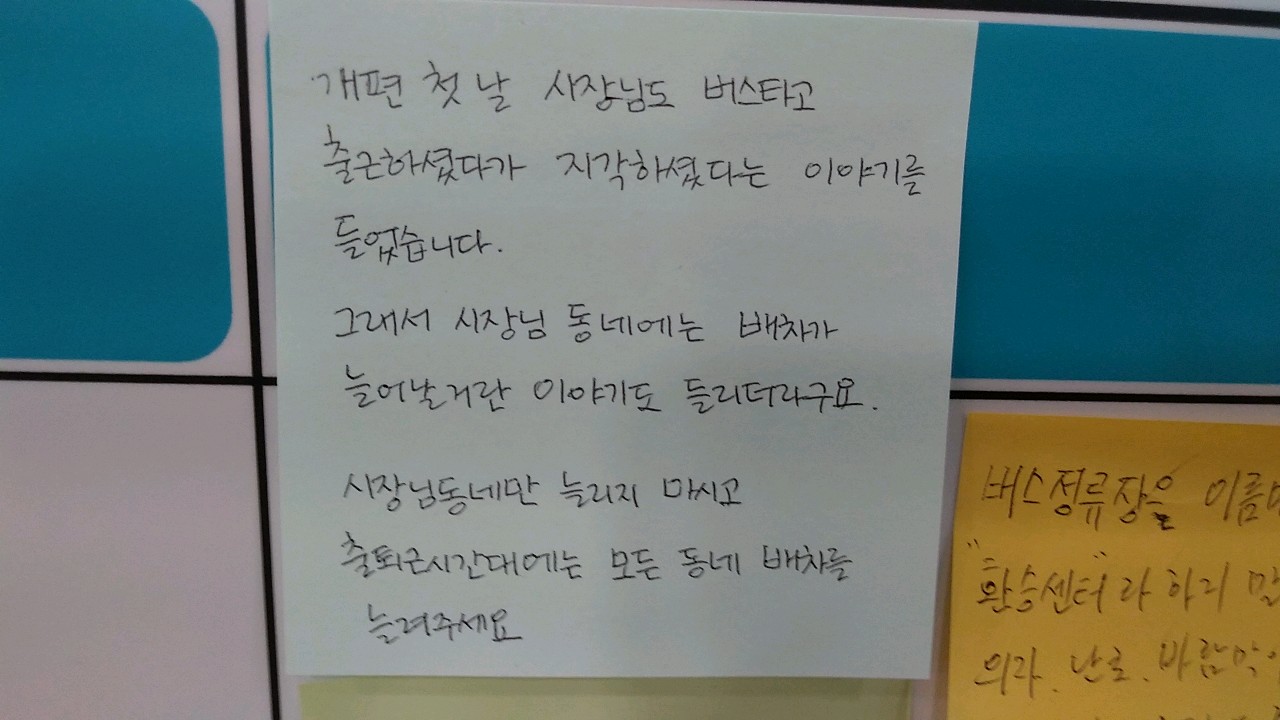 개편 첫 날 시장님도 버스타고
출근하셨다가 지각하셨다는 이야기를
들었습니다.
그래서 시장님 동네에는 배차가
늘어날거란 이야기도 들리더라구요.
시장님동네만 늘리지 마시고
출퇴근시간대에는 모든 동네 배차를
늘려주세요
버스정류장을 이름
"환승센터"라 하리 말
의자. 난로. 바람막